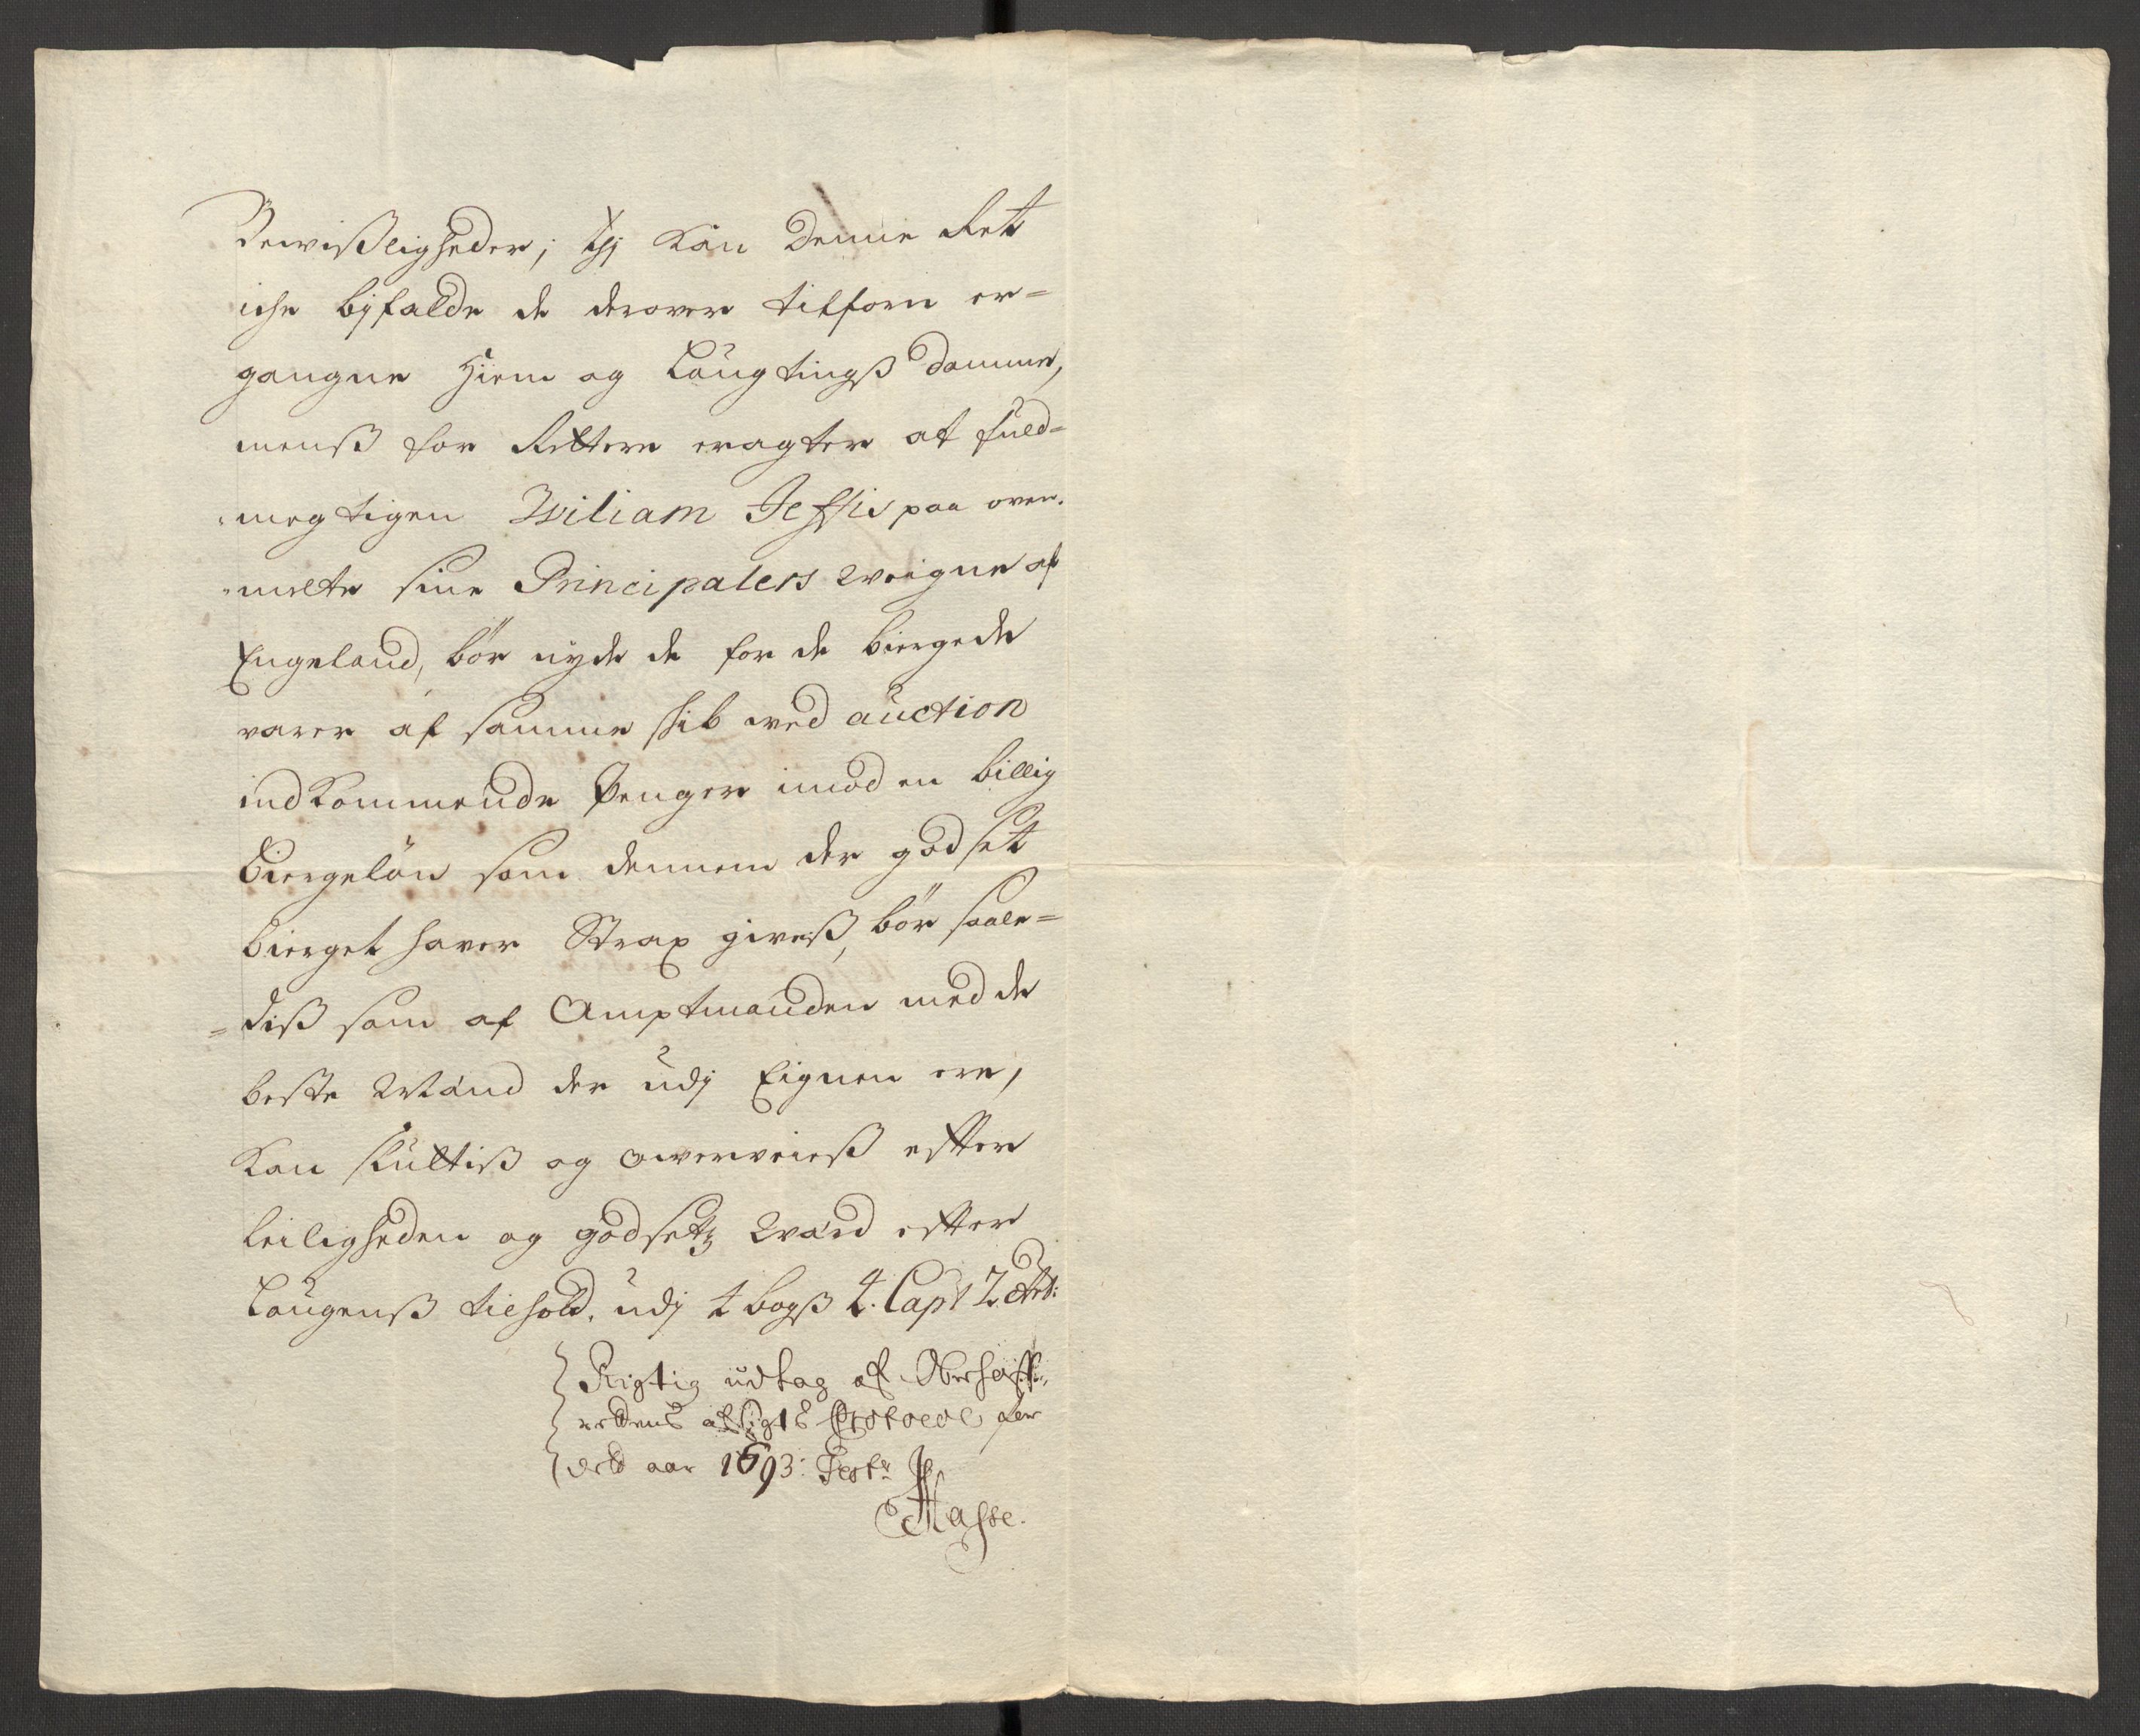 Bewißligheder; thj kan denne Rett
iche byfalde de derover tilforn er=
gangne Hiem og Laugtingß Domme,
menß for Retten eragter at fuld=
megtigen Wiliam Jeffis paa oven.
melte sine Principalers Weigne af
Engeland, bör nyde de for de biergede
varer af samme skib ved auction
ind kommende Penger imod en billig
Biergelön som dennem der godset
bierget haver Strax giveß, bör saale=
=diß som af Amptmanden med de
beste Mænd der udj Eignen ere,
kan skiönniß og overveieß efter
leiligheden og godsetz Værd efter
Laugenß tilhold. udj 4 bogß 4. Cap: 2 Art:
Rigtig udtag af Oberhoff
rettens afsigts Protocol for
dette aar 1693: Test:
Hasse.